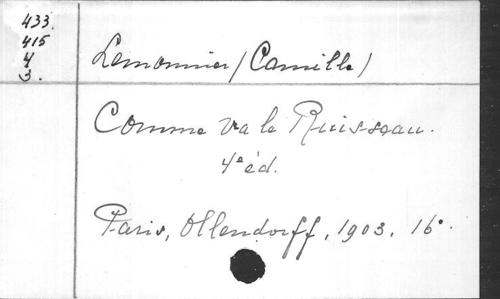 433.
415
4
3.
Lemonnier (Camille)
Comme va le Ruisseau.
4e éd.
Paris, Ollendorff, 1903. 16°.